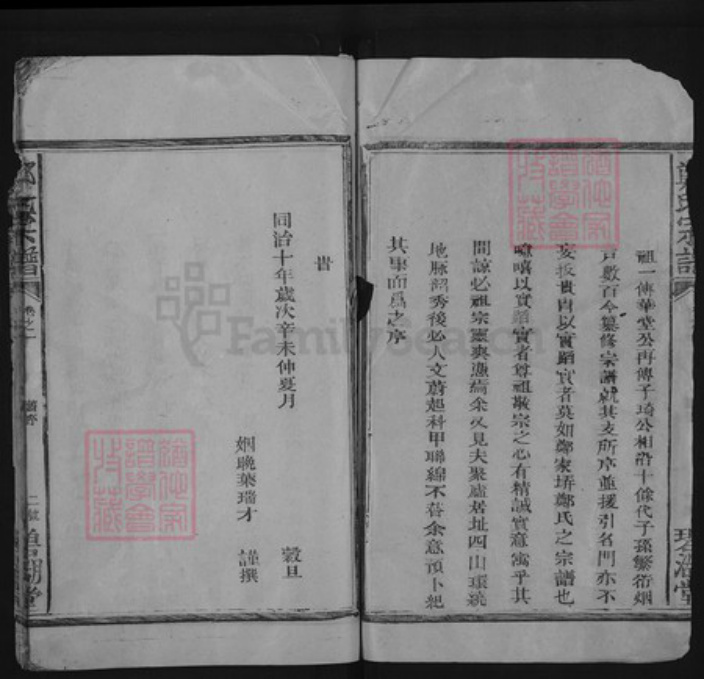 鄭氏宗譜
祖一傳華堂公再傳子琦公相沿十餘代子孫繁衍烟
戶數百今纂修宗譜就其支所序並援引名門亦不
妄扳貴胄以實蹈實者莫如鄭家塝鄭氏之宗譜也
噫嘻以實蹈實者尊祖敬宗之心有精誠實意寓乎其
間諒必祖宗靈爽憑焉余又見夫聚廬居址四山環繞
地脉韶秀後必人文蔚起科甲聯綿不替余意預卜紀
其畢而爲之序
旹
同治十年歲次辛未仲夏月
穀旦
姻晩葉瑞才
謹撰
卷之一
FamilySearch